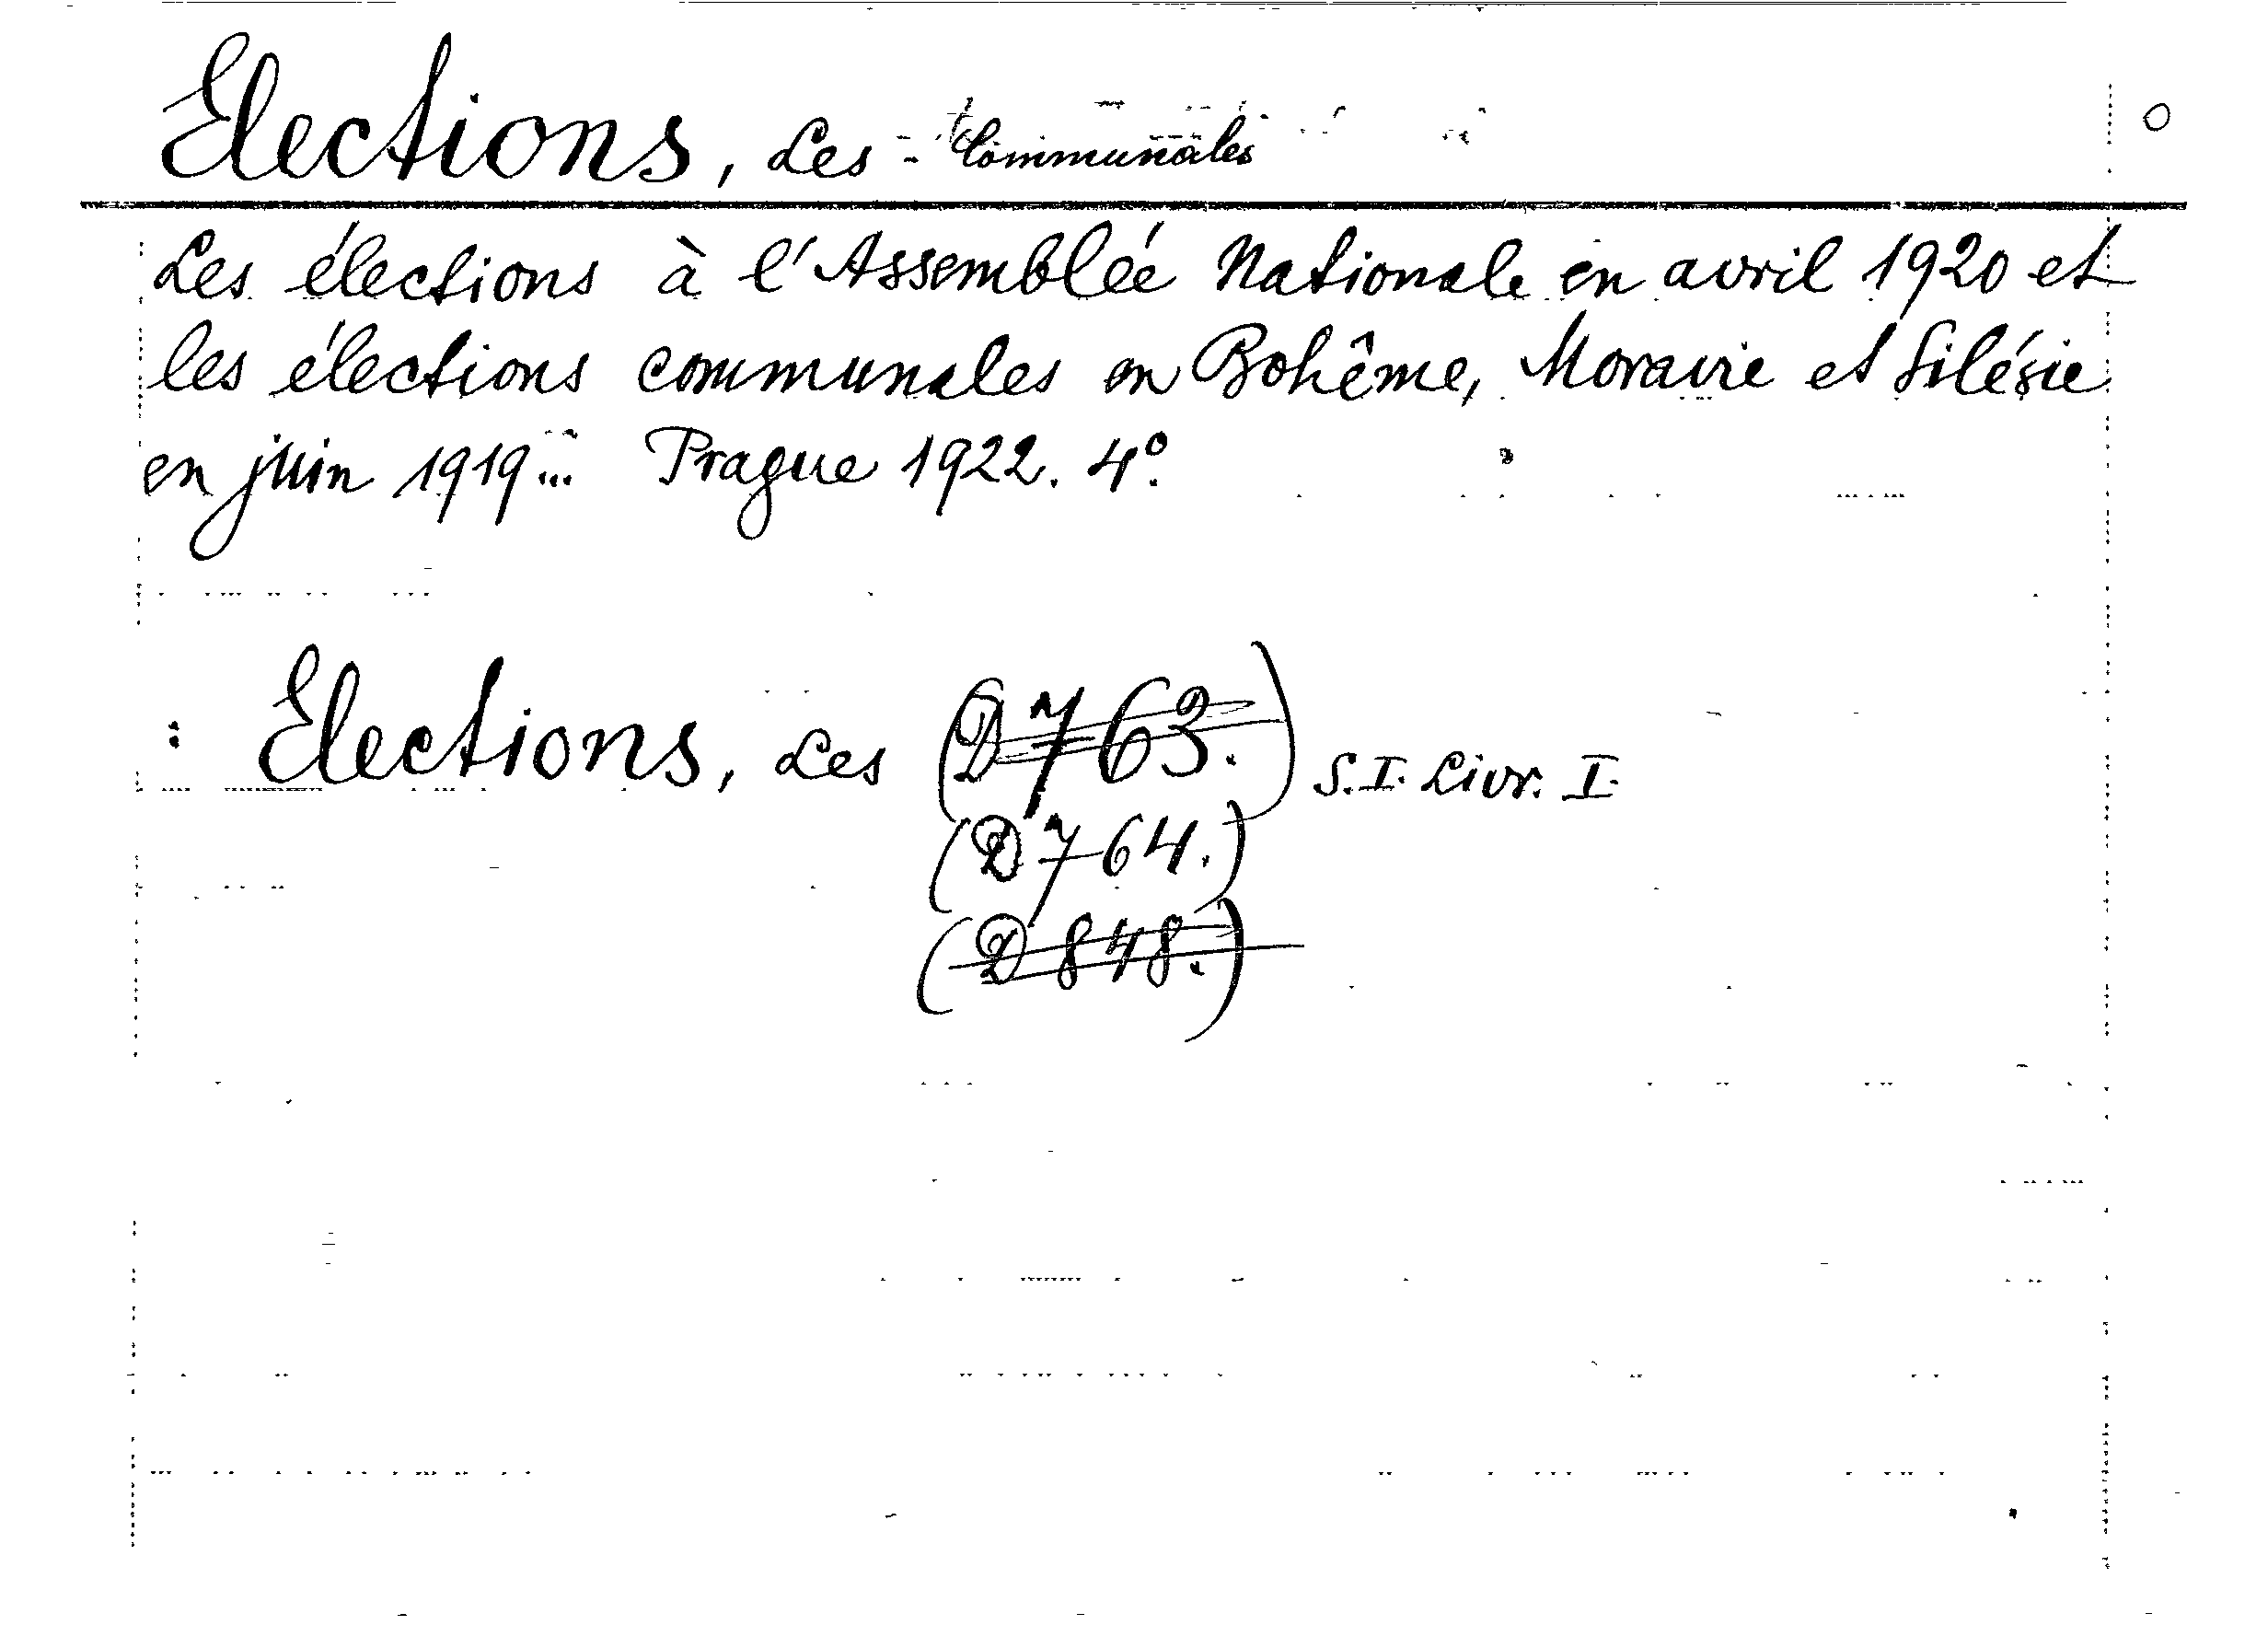 Elections, Les - Communales
Les élections à l'Assemblée Nationale en avril 1920 et
les élections communales en Bohême, Moravie et Silésie
en juin 1919... Prague 1922. 4°.
: Elections, Les (D 763.) S.I. Livr. I.
(D 764.)
(D 848.)